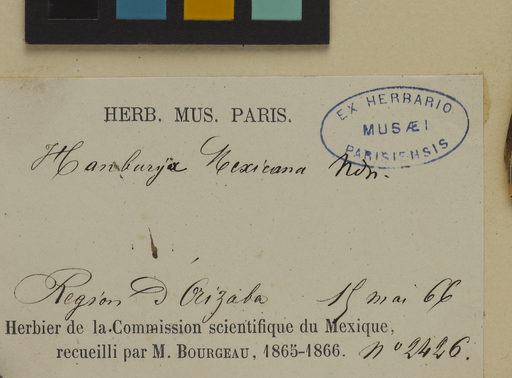 HERB. MUS. PARIS.
EX HERBARIO
MUSÆI
PARISIENSIS
Hanburya Mexicana Ndn.
Region D'Orizaba 15 mai 66
Herbier de la Commission scientifique du Mexique,
recueilli par M. BOURGEAU, 1865-1866. nº 2426.